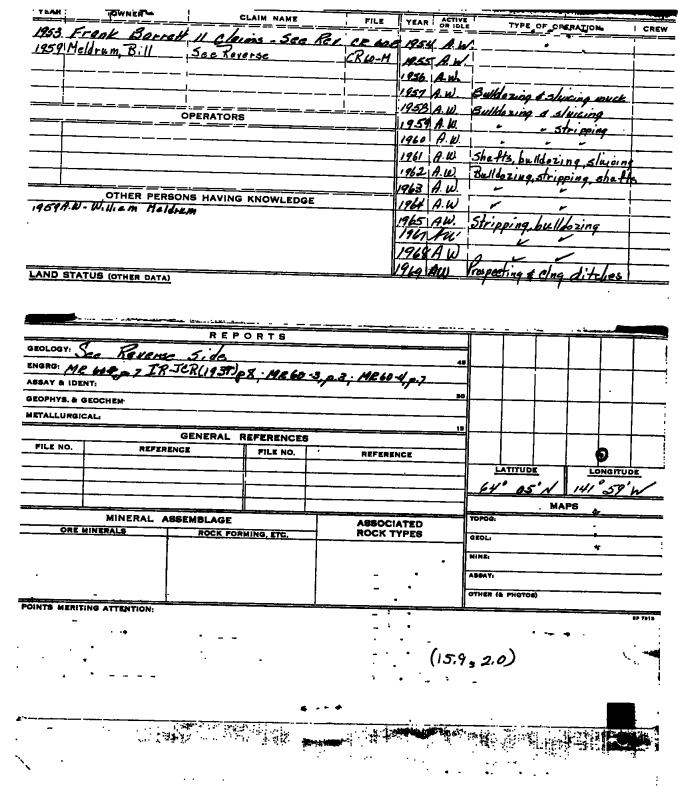 YEAR OWNER CLAIM NAME FILE YEAR ACTIVE OR IDLE TYPE OF OPERATION CREW
1953 Frank Barrett 11 Claims - See Rev. 1954 A.W. "
1959 Meldrum, Bill See Reverse CR60-M 1955 A.W. "
1956 A.W.
1957 A.W. Bulldozing & sluicing muck
1958 A.W. Bulldozing & sluicing
OPERATORS
1959 A.W. " " stripping
1960 A.W. " " "
1961 A.W. Shafts, bulldozing, sluicing
1962 A.W. Bulldozing, stripping, shafts
1963 A.W. ✓ ✓
OTHER PERSONS HAVING KNOWLEDGE
1964 A.W ✓ ✓
1959 A.W - William Meldrum
1965 A.W. Stripping, bulldozing
1967 AW ✓ ✓
1968 A W ✓ ✓
LAND STATUS (OTHER DATA)
1969 AW Prospecting & clng ditches
REPORTS
GEOLOGY: See Reverse Side 45
ENGRG: p.7 IR-JCR(1937)p8; MR60-3, p.3; MR60-4, p.7
ASSAY & IDENT: 30
GEOPHYS. & GEOCHEM:
METALLURGICAL: 15
GENERAL REFERENCES
FILE NO. REFERENCE FILE NO. REFERENCE
LATITUDE LONGITUDE
64° 05' N 141° 59' W
MAPS
MINERAL ASSEMBLAGE
ORE MINERALS ROCK FORMING, ETC.
ASSOCIATED ROCK TYPES
TOPOG:
GEOL:
MINE:
ASSAY:
OTHER (& PHOTOS)
POINTS MERITING ATTENTION:
(15.9, 2.0)